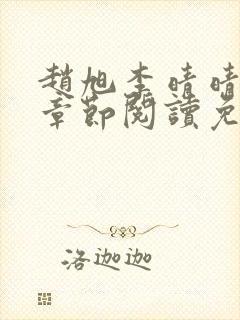 趙旭李晴晴
章節閱讀免
洛迦迦